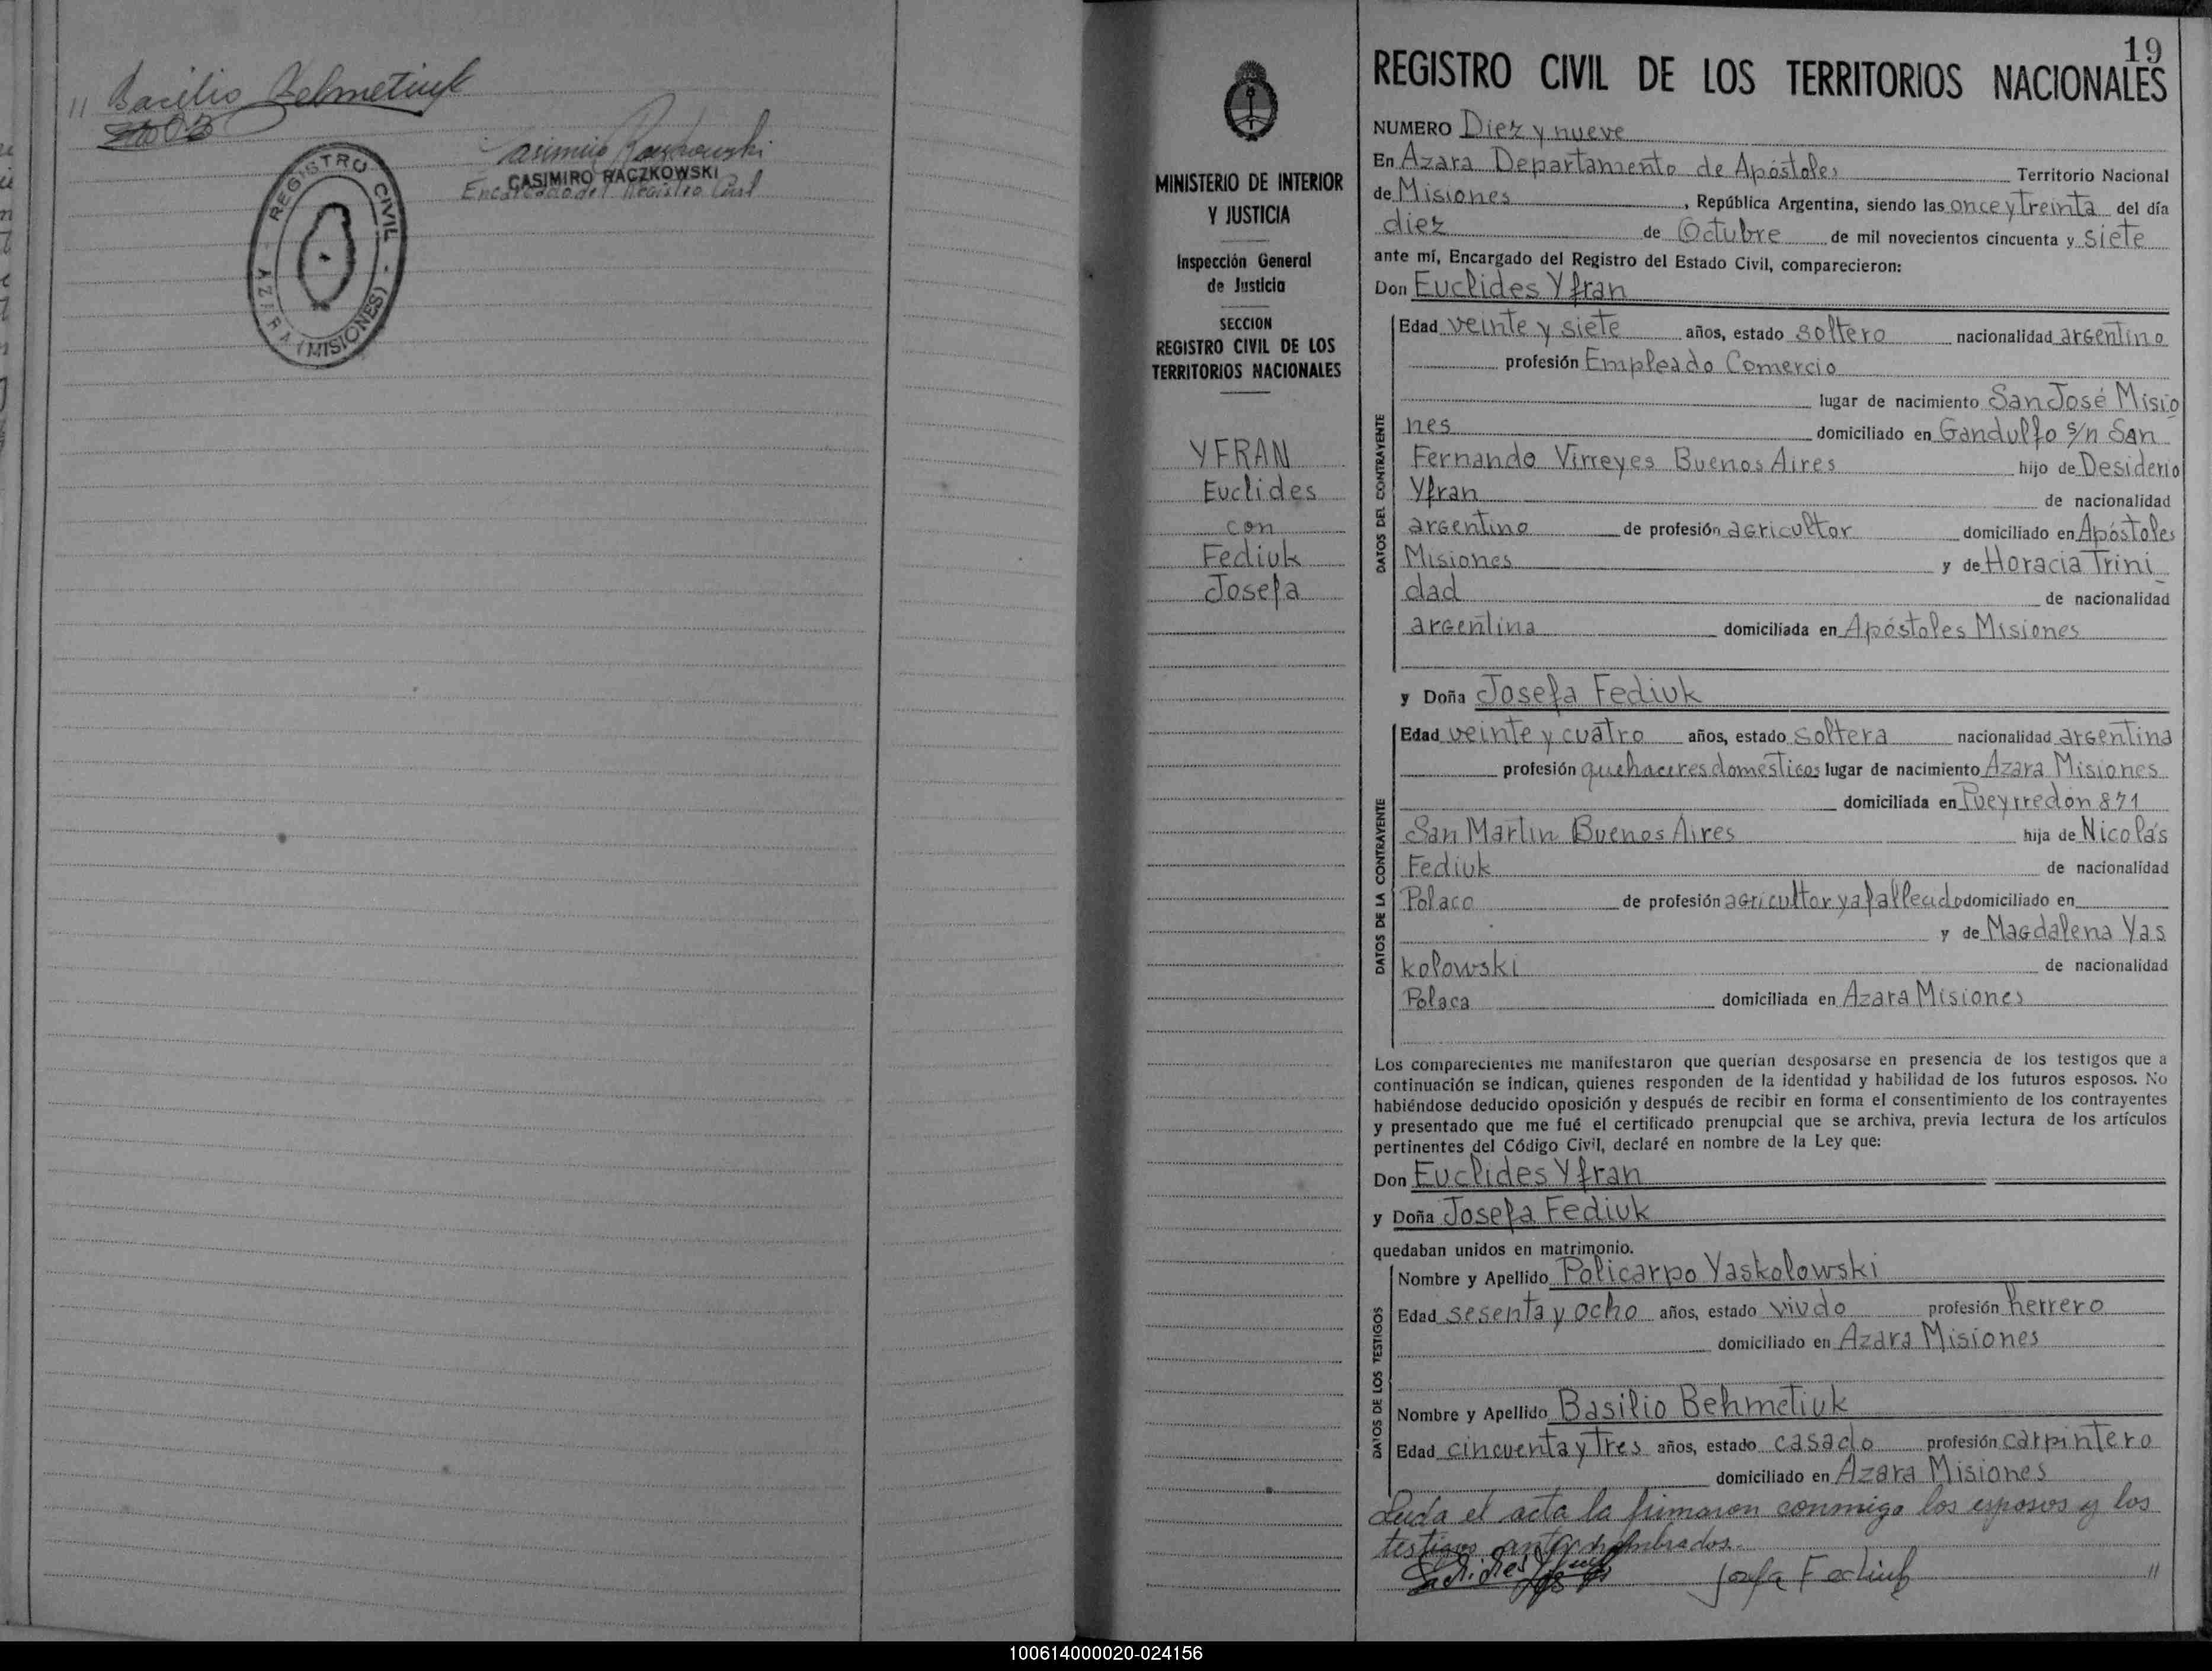 11 Basilio Behmetiuk
Casimiro Raczkowski
CASIMIRO RACZKOWSKI
Encargado del Registro Civil
REGISTRO CIVIL
- AZARA (MISIONES) -
19
REGISTRO CIVIL DE LOS TERRITORIOS NACIONALES
MINISTERIO DE INTERIOR
Y JUSTICIA
Inspección General
de Justicia
SECCION
REGISTRO CIVIL DE LOS
TERRITORIOS NACIONALES
YFRAN
Euclides
con
Fediuk
Josefa
NUMERO Diez y nueve
En Azara Departamento de Apóstoles Territorio Nacional
de Misiones, República Argentina, siendo las once y treinta del día
diez de Octubre de mil novecientos cincuenta y siete
ante mí, Encargado del Registro del Estado Civil, comparecieron:
Don Euclides Yfran
DATOS DEL CONTRAYENTE
Edad veinte y siete años, estado soltero nacionalidad argentino
profesión Empleado Comercio
lugar de nacimiento San José Misio
nes domiciliado en Gandulfo s/n San
Fernando Virreyes Buenos Aires hijo de Desiderio
Yfran de nacionalidad
argentino de profesión agricultor domiciliado en Apóstoles
Misiones y de Horacia Trini_
dad de nacionalidad
argentina domiciliada en Apóstoles Misiones
y Doña Josefa Fediuk
DATOS DE LA CONTRAYENTE
Edad veinte y cuatro años, estado soltera nacionalidad argentina
profesión quehaceres domésticos lugar de nacimiento Azara Misiones
domiciliada en Pueyrredón 871
San Martin Buenos Aires hija de Nicolás
Fediuk de nacionalidad
Polaco de profesión agricultor ya fallecido domiciliado en
y de Magdalena Yas
kolowski de nacionalidad
Polaca domiciliada en Azara Misiones
Los comparecientes me manifestaron que querían desposarse en presencia de los testigos que a
continuación se indican, quienes responden de la identidad y habilidad de los futuros esposos. No
habiéndose deducido oposición y después de recibir en forma el consentimiento de los contrayentes
y presentado que me fué el certificado prenupcial que se archiva, previa lectura de los artículos
pertinentes del Código Civil, declaré en nombre de la Ley que:
Don Euclides Yfran
y Doña Josefa Fediuk
quedaban unidos en matrimonio.
DATOS DE LOS TESTIGOS
Nombre y Apellido Policarpo Yaskolowski
Edad sesenta y ocho años, estado viudo profesión herrero
domiciliado en Azara Misiones
Nombre y Apellido Basilio Behmetiuk
Edad cincuenta y tres años, estado casado profesión carpintero
domiciliado en Azara Misiones
Leida el acta la firmaron conmigo los esposos y los
testigos antes nombrados.
Euclides Yfran Josefa Fediuk 11
100614000020-024156